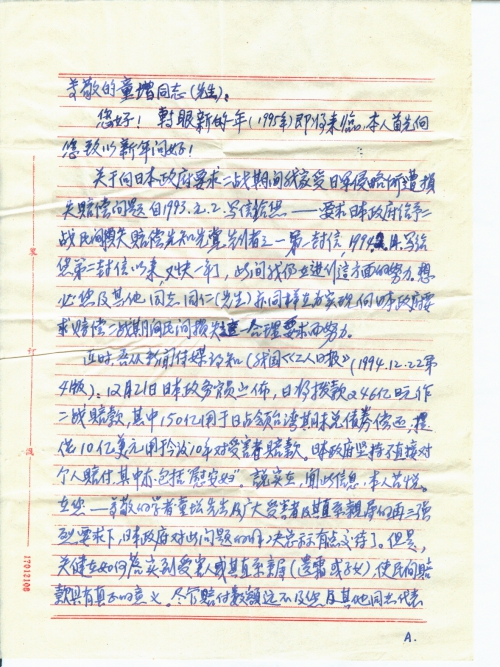 尊敬的童增同志(先生)：
您好！转眼新的一年(1995年)即将来临，本人首先向
您致以新年问好！
关于向日本政府要求二战期间我家受日军侵略所遭损
失赔偿问题自1993.2.2.写信给您——要求日本政府给予二
战民间损失赔偿先知先觉先行者之一第一封信，1994 写给
您第二封信以来，又快一年了，此间我仍在进行这方面的努力。想
必您及其他同志同仁(先生)亦同样在为实现向日本政府要
求赔偿二战期间民间损失这一合理要求而努力。
近时吾从新闻传媒得知(我国《工人日报》(1994.12.22第
4版)。12月21日日本政务官员公布，日将拨款246亿日元作
二战赔款，其中150亿用于日占领台湾期未兑债券偿还，提
供10亿美元用于今后10年对受害者赔款。日本政府坚持不直接对
个人赔付，其中亦包括"慰安妇"。说实在，闻此信息，本人喜悦。
在您——尊敬的学者童增先生及广大受害者及其直系亲属的再三强
烈要求下，日本政府对此问题的 决定 有点 了。但是，
关键在如何落实到受害人或其直系亲属(遗孀或子女)，使民间赔
款具有真正的意义。尽管赔付数额远不及您及其他同志代表
A.
17012108